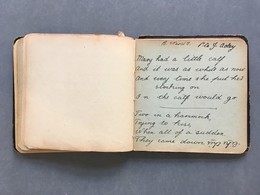 Pte J. Astey
Mary had a little calf
And it was as white as snow
And every time she put her
stocking on
The calf would go
Two in a hammock
Trying to kiss
When all of a sudden
They came down